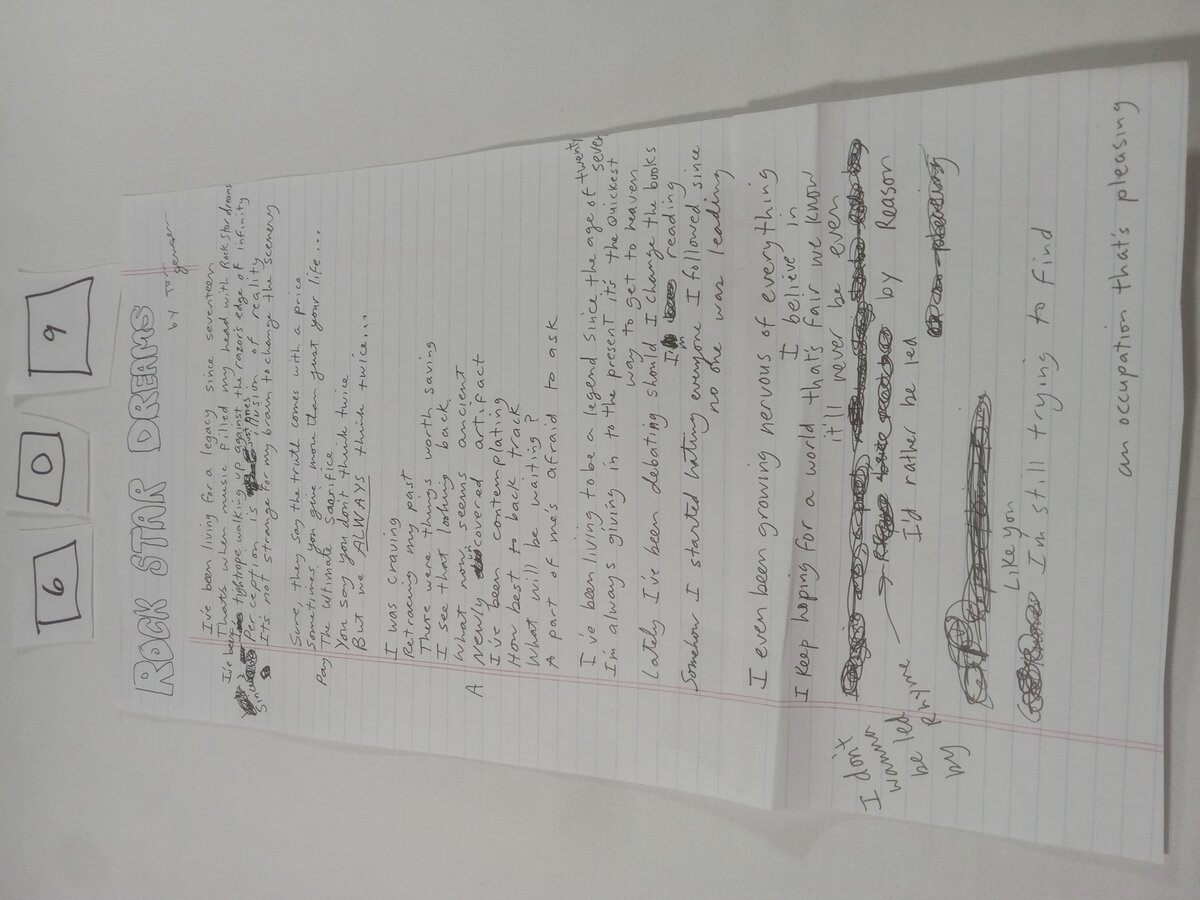 6 0 9
ROCK STAR DREAMS
by
I've been living for a legacy since seventeen
That's when music filled my head with Rock star dreams
I've been tightrope walking up against the razors edge of infinity
Since Perception is just ones illusion of reality
It's not strange for my brain to change the scenery
Sure, they say the truth comes with a price
Sometimes you give more than just your life...
Pay The Ultimate Sacrifice
You say you don't think twice
But we ALWAYS think twice...
I was craving
Retracing my past
There were things worth saving
I see that looking back
What now seems ancient
A Newly uncovered artifact
I've been contemplating
How best to back track
What will be waiting?
A part of me's afraid to ask
I've been living to be a legend since the age of twenty
seven
I'm always giving in to the present it's the quickest
way to get to heaven
Lately I've been debating should I change the books
I'm reading
Somehow I started hating everyone I followed since
no one was leading
I even been growing nervous of everything
I believe in
I keep hoping for a world that's fair we know
it'll never be even
I don't
wanna
be led
by Rhyme
I'd rather be led by Reason
Like you
I'm still trying to find
an occupation that's pleasing